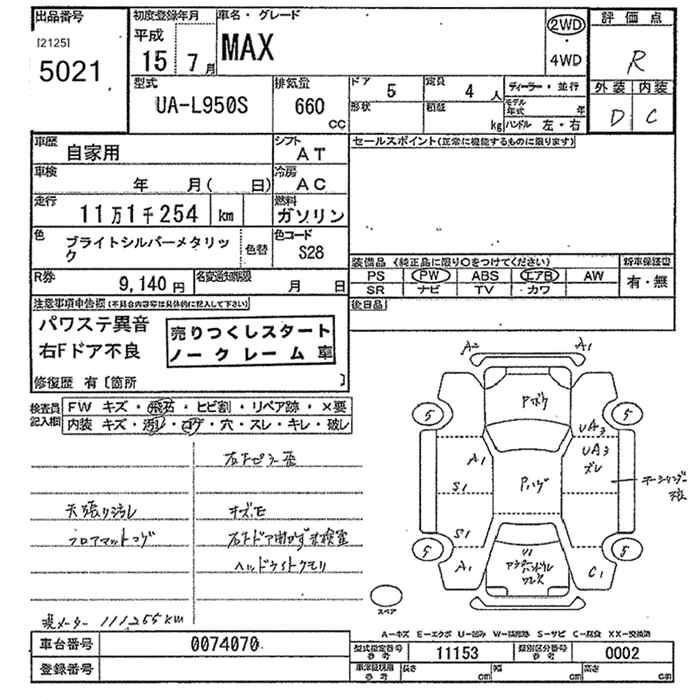 出品番号
[2125]
5021
初度登録年月
平成
15 7月
車名・グレード
MAX
2WD
・
4WD
評価点
R
外装 内装
D C
型式
UA-L950S
排気量
660
CC
ドア 5
定員 4 人
ディーラー・並行
形状
積載 kg
モデル年式 年
ハンドル 左・右
車歴
自家用
シフト
AT
セールスポイント(正常に機能するものに限ります)
車検
年 月( 日)
冷房
AC
走行
11万1千254 km
燃料
ガソリン
色
ブライトシルバーメタリック
色替
色コード
S28
装備品 (純正品に限り○をつけてください)
新車保証書
PS PW ABS エアB AW
SR ナビ TV カワ
有・無
R券
9,140 円
名変通知期限
月 日
後日品
注意事項申告欄(不具合内容は具体的に記入して下さい)
パワステ異音
右Fドア不良
売りつくしスタート
ノークレーム車
修復歴 有〔箇所 〕
検査員記入欄
FW キズ・飛石・ヒビ割・リペア跡・×要
内装 キズ・汚レ・コゲ・穴・スレ・キレ・破レ
右F ピラー歪
天張り汚レ
キズモ
フロアマットコゲ
右Fドア開かず未検査
ヘッドライトクモリ
現メーター 111255km
A2 A1
Aボウ
5 5
UA3
A1
UA3
ズレ
S1
Pハゲ
S1
U1
A1
C1
5 5
スペア
A-キズ E-エクボ U-凹み W-補修跡 S-サビ C-腐食 XX-交換済
車台番号
0074070
型式指定番号
参考
11153
類別区分番号
参考
0002
登録番号
車庫証明用
参考
長さ cm
幅 cm
高さ cm